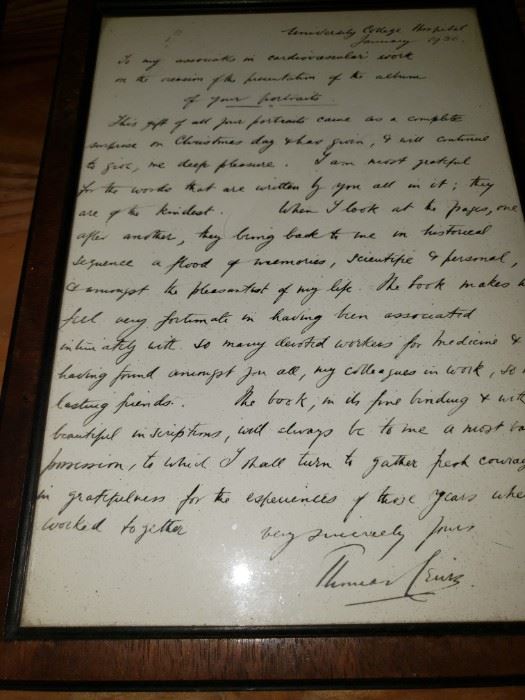 University College Hospital
January 1930.
To my associates in cardiovascular work
on the occasion of the presentation of the album
of your portraits.
This gift of all your portraits came as a complete
surprise on Christmas day & has given, & will continue
to give, me deep pleasure. I am most grateful
for the words that are written by you all in it; they
are of the kindest. When I look at the pages, one
after another, they bring back to me in historical
sequence a flood of memories, scientific & personal,
& amongst the pleasantest of my life. The book makes
feel very fortunate in having been associated
intimately with so many devoted workers for medicine &
having found amongst you all, my colleagues in work, so
lasting friends. The book, in its fine binding & with
beautiful inscriptions, will always be to me a most
possession, to which I shall turn to gather fresh courag
in gratefulness for the experiences of those years whe
worked together very sincerely yours
Thomas Lewis